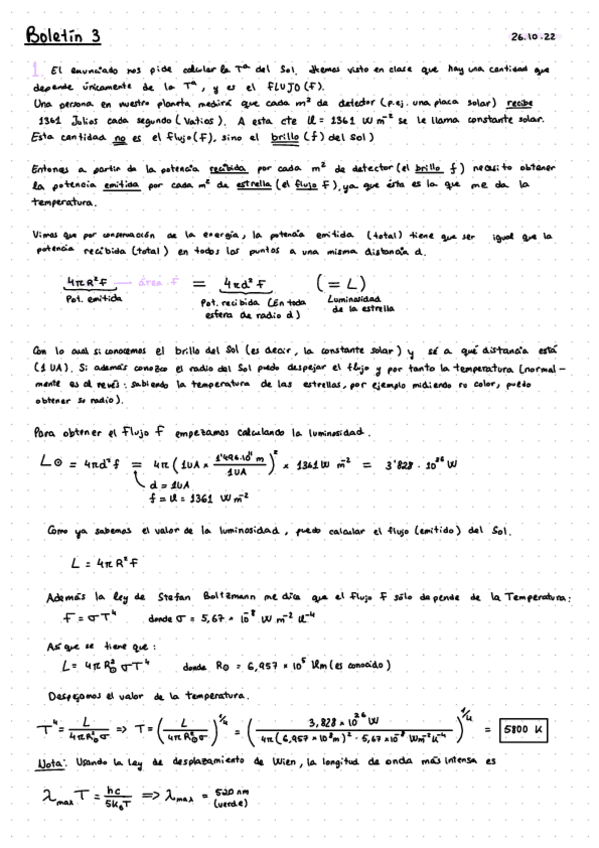 Boletín 3
26.10.22
1. El enunciado nos pide calcular la Tª del Sol. Hemos visto en clase que hay una cantidad que
depende únicamente de la Tª, y es el FLUJO (F).
Una persona en nuestro planeta medirá que cada m² de detector (p.ej. una placa solar) recibe
1361 Julios cada segundo (Vatios). A esta cte K = 1361 W m⁻² se le llama constante solar.
Esta cantidad no es el flujo (F), sino el brillo (f) del Sol)
Entonces a partir de la potencia recibida por cada m² de detector (el brillo f) necesito obtener
la potencia emitida por cada m² de estrella (el flujo F), ya que ésta es la que me da la
temperatura.
Vimos que por conservación de la energía, la potencia emitida (total) tiene que ser igual que la
potencia recibida (total) en todos los puntos a una misma distancia d.
4πR²F — área · F = 4πd² f (= L)
Pot. emitida Pot. recibida (En toda esfera de radio d) Luminosidad de la estrella
Con lo cual si conocemos el brillo del Sol (es decir, la constante solar) y sé a qué distancia está
(1 UA). Si además conozco el radio del Sol puedo despejar el flujo y por tanto la temperatura (normal-
mente es al revés: sabiendo la temperatura de las estrellas, por ejemplo midiendo su color, puedo
obtener su radio).
Para obtener el flujo F empezamos calculando la luminosidad.
L⊙ = 4πd² f = 4π (1UA × 1'496·10¹¹ m / 1UA)² × 1361 W m⁻² = 3'828 · 10²⁶ W
d = 1UA
f = K = 1361 W m⁻²
Como ya sabemos el valor de la luminosidad, puedo calcular el flujo (emitido) del Sol.
L = 4πR²F
Además la ley de Stefan Boltzmann me dice que el flujo F sólo depende de la Temperatura:
F = σT⁴ donde σ = 5,67 × 10⁻⁸ W m⁻² K⁻⁴
Así que se tiene que:
L = 4πR⊙² σT⁴ donde R⊙ = 6,957 × 10⁵ Km (es conocido)
Despejamos el valor de la temperatura.
T⁴ = L / 4πR⊙²σ => T = (L / 4πR⊙²σ)^1/4 = (3,828 × 10²⁶ W / 4π(6,957 × 10⁸ m)² · 5,67 × 10⁻⁸ W m⁻² K⁻⁴)^1/4 = 5800 K
Nota: Usando la ley de desplazamiento de Wien, la longitud de onda más intensa es
λmax T = hc / 5kbT => λmax = 520 nm (verde)